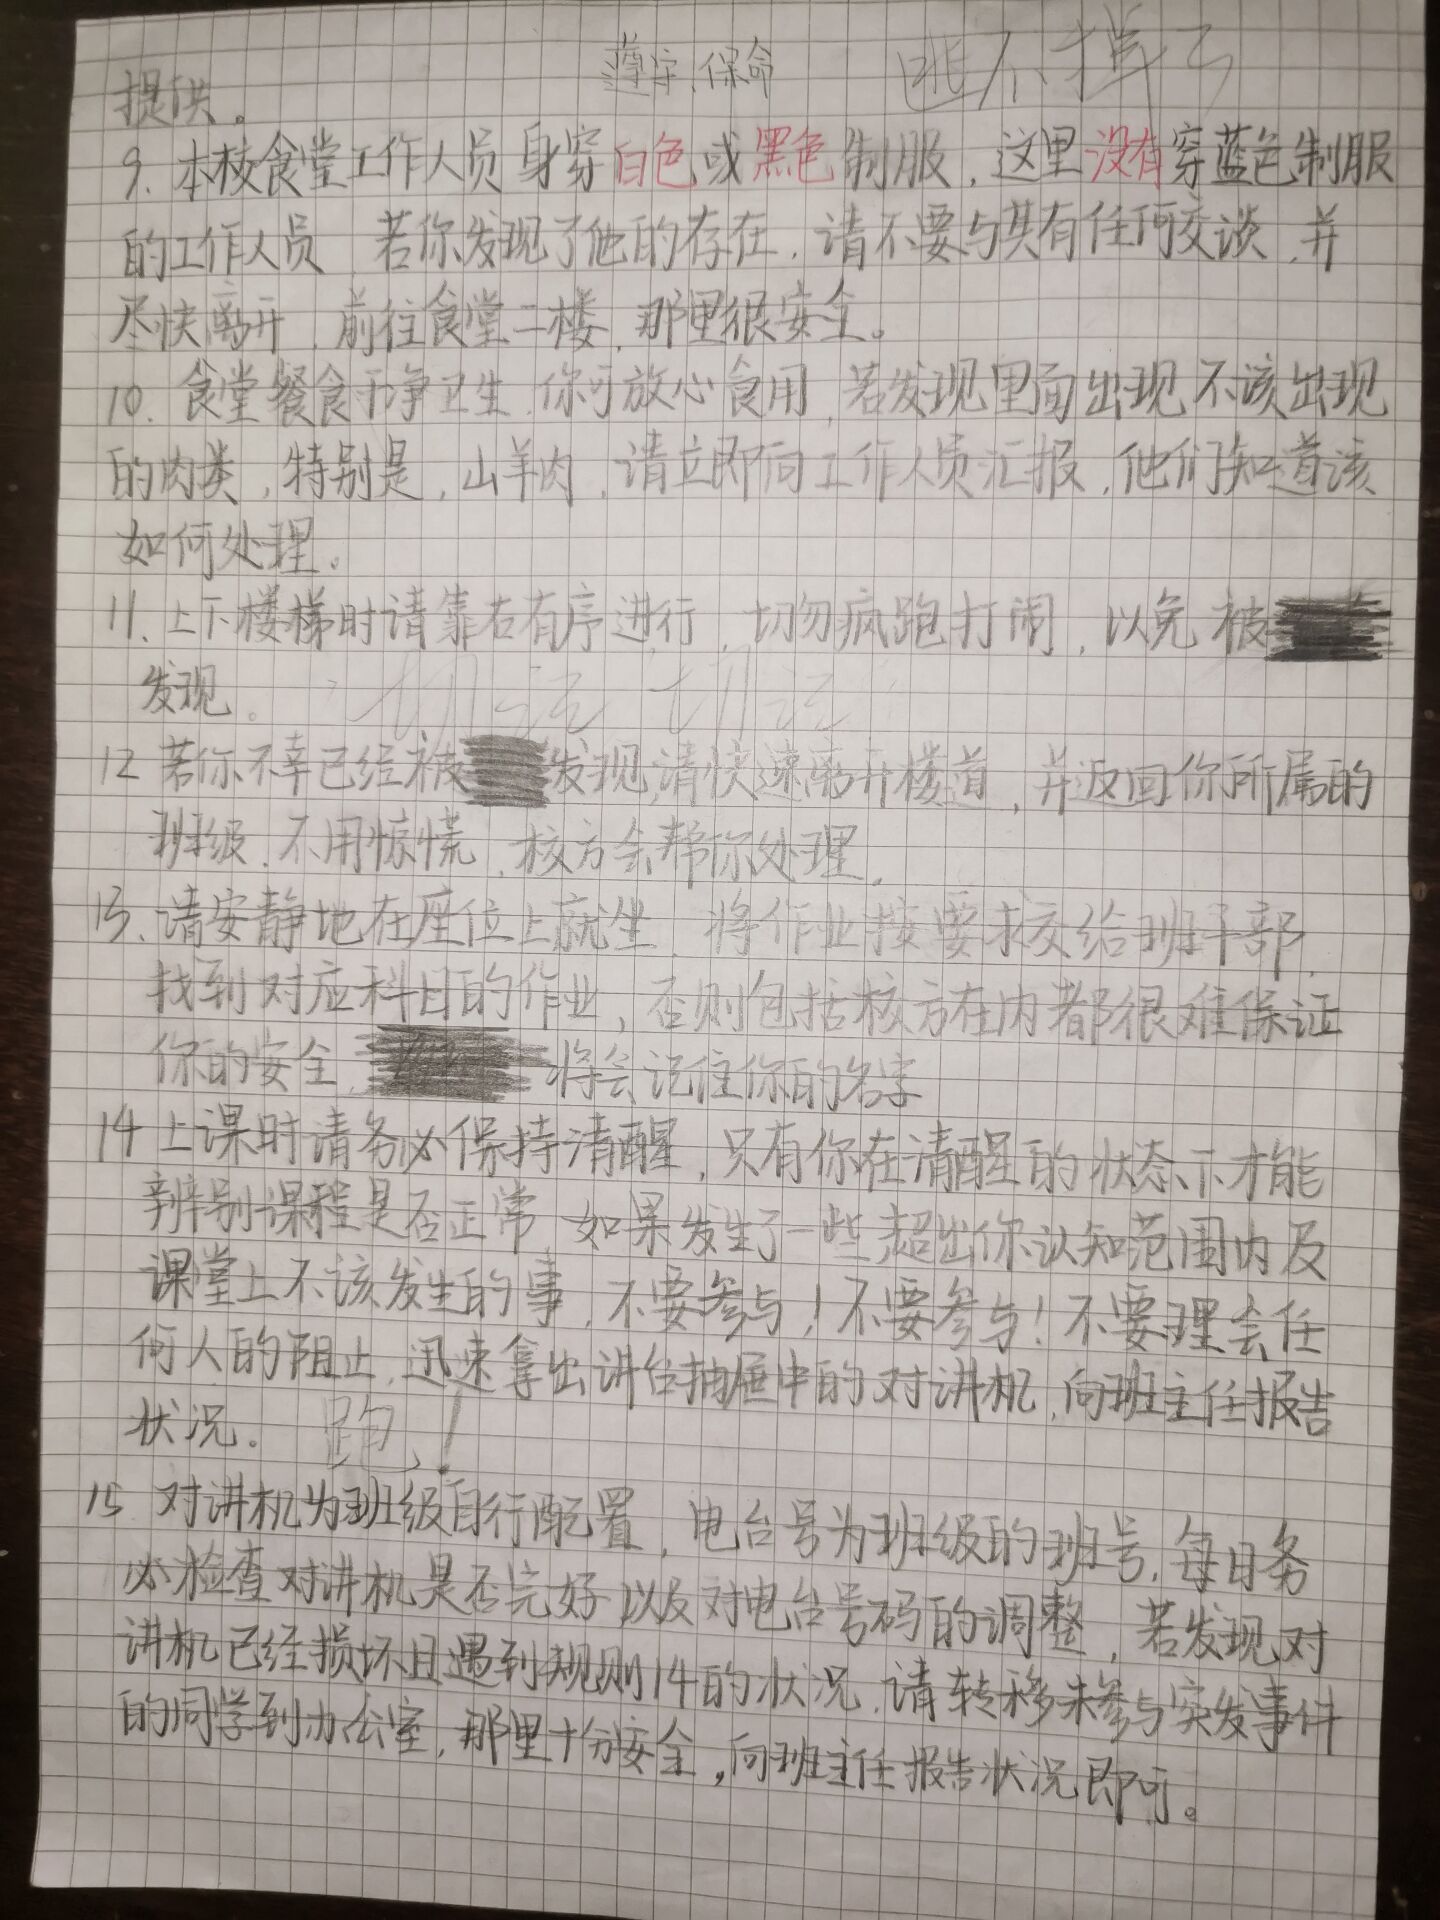 遵守,保命 逃不掉了
提供。
9. 本校食堂工作人员身穿白色或黑色制服,这里没有穿蓝色制服
的工作人员,若你发现了他的存在,请不要与其有任何交谈,并
尽快离开,前往食堂二楼,那里很安全。
10. 食堂餐食干净卫生,你可放心食用,若发现里面出现不该出现
的肉类,特别是,山羊肉,请立即向工作人员汇报,他们知道该
如何处理。
11. 上下楼梯时请靠右有序进行,切勿疯跑打闹,以免被
发现。 切记 切记
12 若你不幸已经被 发现,请快速离开楼道,并返回你所属的
班级,不用惊慌,校方会帮你处理,
13. 请安静地在座位上就坐,将作业按要求交给班干部,
找到对应科目的作业,否则包括校方在内都很难保证
你的安全, 将会记住你的名字
14 上课时请务必保持清醒,只有你在清醒的状态下才能
辨别课程是否正常,如果发生了一些超出你认知范围内及
课堂上不该发生的事,不要参与!不要参与!不要理会任
何人的阻止,迅速拿出讲台抽屉中的对讲机,向班主任报告
状况。 跑!
15 对讲机为班级自行配置,电台号为班级的班号,每日务
必检查对讲机是否完好以及对电台号码的调整,若发现对
讲机已经损坏且遇到规则14的状况,请转移未参与突发事件
的同学到办公室,那里十分安全,向班主任报告状况即可。